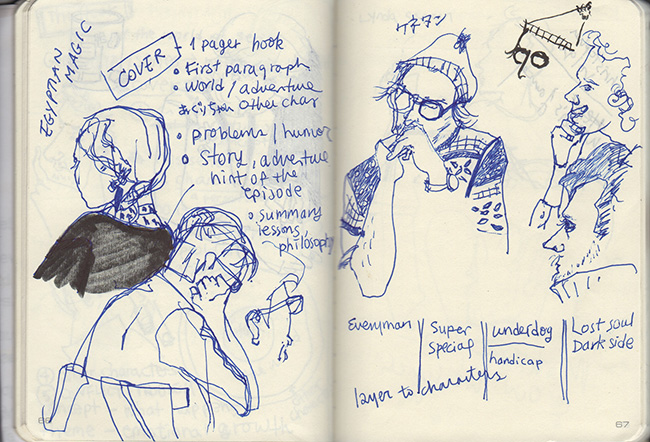 EGYPTIAN
MAGIC
COVER
- 1 pager hook
• First paragraph
• World / adventure
other char
• problems / humor
• Story, adventure
hint of the
episode
• summary
lessons,
philosophy
66
go
Everyman
Super
special
underdog
handicap
Lost soul
Dark side
layer to characters
67